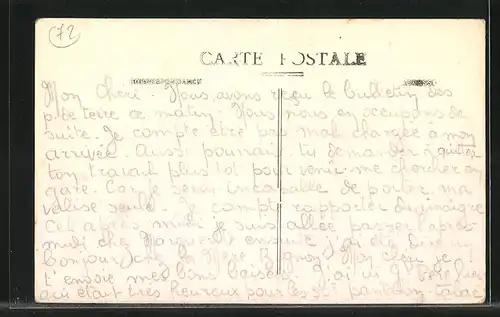 72
CARTE POSTALE
CORRESPONDANCE
Mon Chéri. Nous avons reçu le bulletin des
p de terre ce matin. Nous nous en occupons de
suite. Je compte être pas mal chargée à mon
arrivée. Aussi pourrais tu demander à quitter
ton travail plus tôt pour venir me chercher en
gare. Car je serai incapable de porter ma
valise seule. Je compte rapporter du vinaigre
Cet après midi je suis allée passer l'après
midi chez Marguerite ensuite j'ai été dire un
bonjour chez la Mère. Mon cheri je
t'envoie mes bons baisers. J'ai vu
qui était très heureux pour les